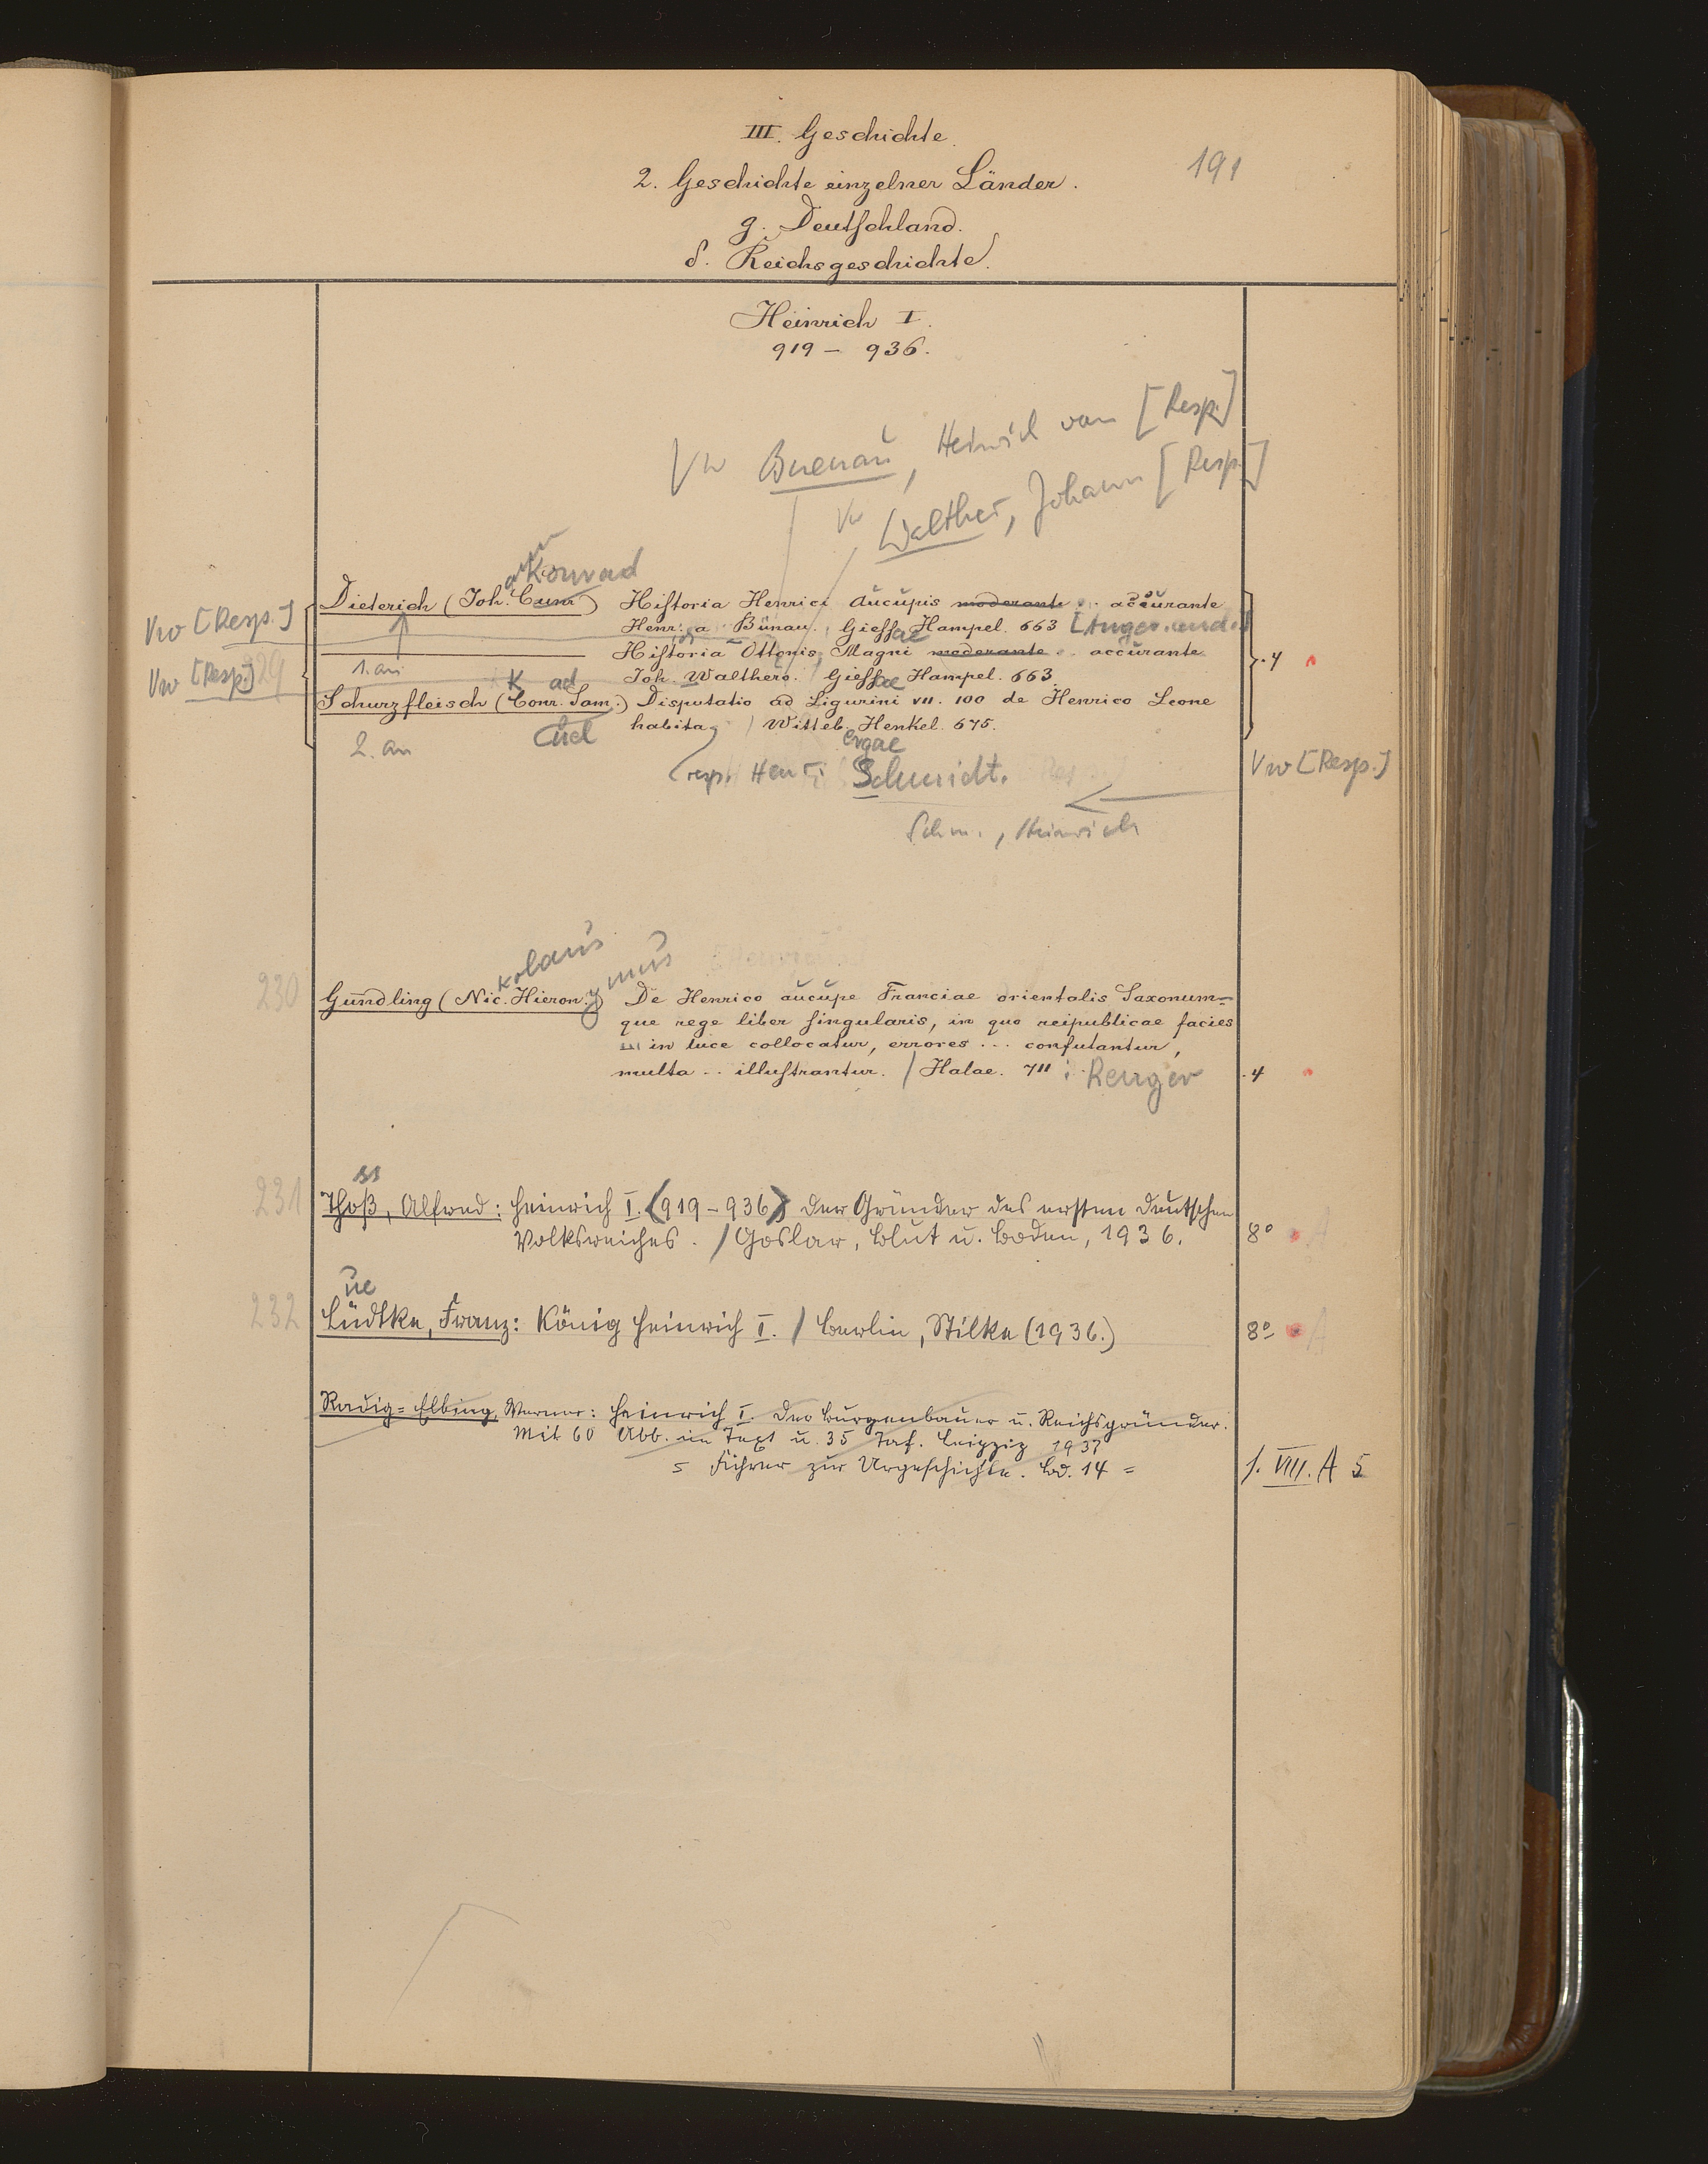 III. Geschichte.
191
2. Geschichte einzelner Länder.
g. Deutschland.
δ. Reichsgeschichte.
Heinrich I.
919 – 936.
Vw Buenau, Heinrich von [Resp.]
Vw Walther, Johann [Resp.]
Konrad
Vw [Resp.]
Dieterich (Joh. Cunr.) Historia Henrici Aucupis moderante .. accurante
Henr. a Bünau. / Giessae Hampel. 663
Historia Ottonis Magni moderante .. accurante
1. an
Vw [Resp.] 229
Joh. Walthero. / Giessae Hampel. 663.
.4
K ad
Schurzfleisch (Conr. Sam.) Disputatio ad Ligurini VII. 100 de Henrico Leone
uel
habita / Witteb. Henkel. 675.
ergae
2. an
(resp. Henr. Schmidt.
Vw [Resp.]
Schm., Heinrich
kolaus
ymus
230
Gundling (Nic. Hieron.) De Henrico aucupe Franciae orientalis Saxonum=
que rege liber singularis, in quo reipublicae facies
in luce collocatur, errores ... confutantur,
multa .. illustrantur. / Halae. 711: Renger
.4
ss
231
Thoß, Alfred: Heinrich I. (919–936) Der Gründer des ersten deutschen
Volksreiches. / Goslar, Blut u. Boden, 1936.
8º
A
ue
232
Lüdtke, Franz: König Heinrich I. / Berlin, Stilke (1936.)
8º
A
Radig=Elbing, Werner: Heinrich I. Der Burgenbauer u. Reichsgründer.
Mit 60 Abb. im Text u. 35 Taf. Leipzig 1937
= Führer zur Urgeschichte. Bd. 14 =
s. VIII. A 5